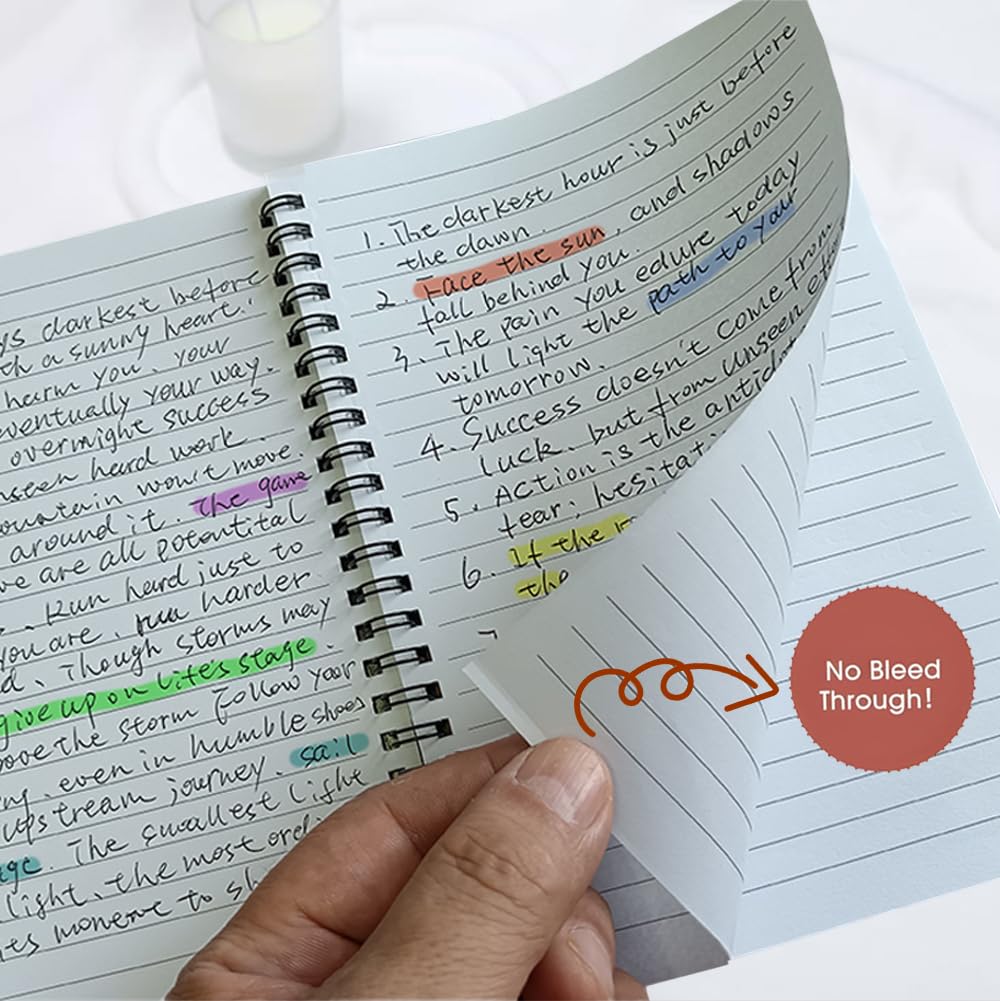 ys darkest before
th a sunny heart."
harm you. your
eventually your way.
overnight success
nseen hard work.
ountain won't move.
around it. The game
we are all potentital
Run hard just to
you are. run harder
d. Though storms may
give up on life's stage.
ove the storm follow your
even in humble shoes
upstream journey. sail
ge. The smallest light
light. the most ordi
ts moment to sh
1. The darkest hour is just before
the dawn.
2. Face the sun, and shadows
fall behind you.
3. The pain you edure today
will light the path to your
tomorrow.
4. Success doesn't come from
luck. but from unseen effo
5. Action is the antido
fear; hesitat
6. If the
the
7
No Bleed
Through!